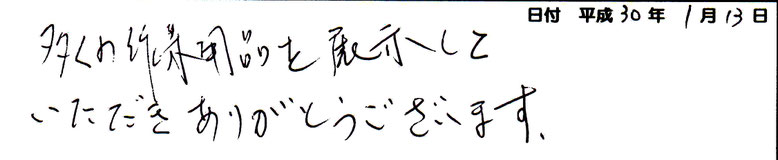 日付 平成 30 年 1 月 13 日
多くの 用品を展示して
いただきありがとうございます。